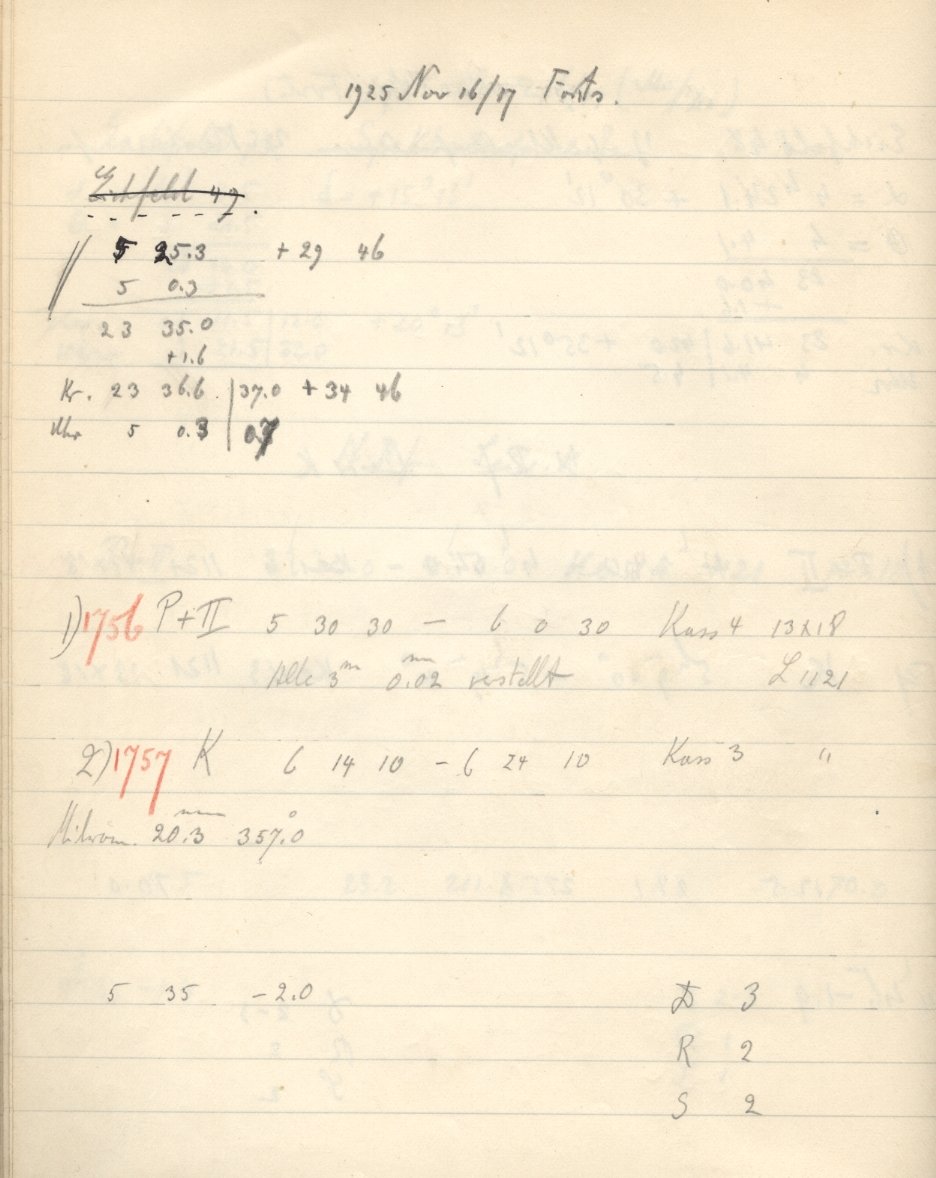 1925 Nov 16/17 Forts.
Eichfeld 49.
5 25.3 + 29 46
5 0.3
23 35.0
+1.6
Kr. 23 36.6 | 37.0 + 34 46
Uhr 5 0.3 | 0.7
1) 1756 P+II 5 30 30 — 6 0 30 Kass 4 13x18
Alle 3m 0.02 mm verstellt L 1121
2) 1757 K 6 14 10 - 6 24 10 Kass 3 "
20.3 mm 357.0°
5 35 -2.0 D 3
R 2
S 2